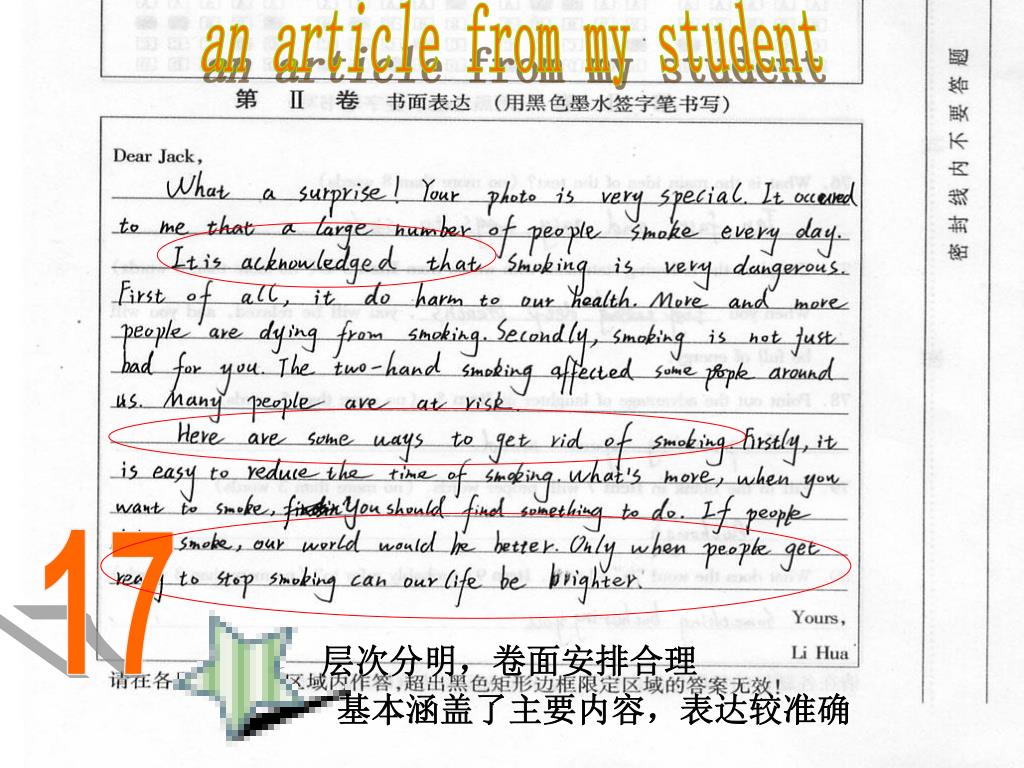 an article from my student
第 Ⅱ 卷 书面表达 (用黑色墨水签字笔书写)
Dear Jack,
What a surprise! Your photo is very special. It occured
to me that a large number of people smoke every day.
It is acknowledged that smoking is very dangerous.
First of all, it do harm to our health. More and more
people are dying from smoking. Secondly, smoking is not just
bad for you. The two-hand smoking affected some people around
us. Many people are at risk.
Here are some ways to get rid of smoking. Firstly, it
is easy to reduce the time of smoking. What's more, when you
want to smoke, you should find something to do. If people
smoke, our world would be better. Only when people get
ready to stop smoking can our life be brighter.
Yours,
Li Hua
17
层次分明，卷面安排合理
请在各 区域内作答,超出黑色矩形边框限定区域的答案无效!
基本涵盖了主要内容，表达较准确
密封线内不要答题